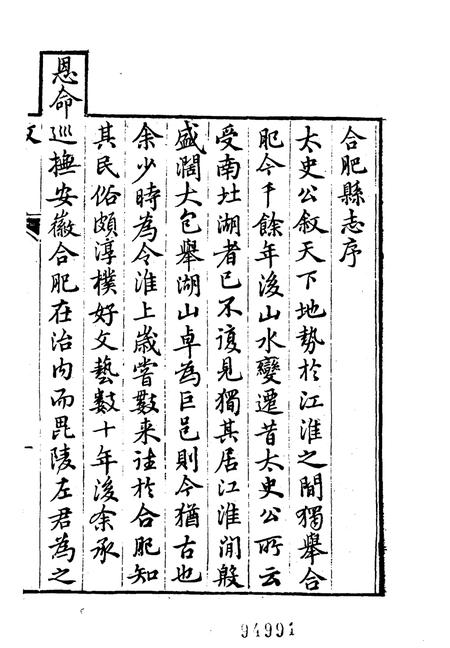 合肥縣志序
太史公叙天下地勢於江淮之間獨舉合
肥今千餘年後山水變遷昔太史公所云
受南北湖者已不復見獨其居江淮間殷
盛闊大包舉湖山卓為巨邑則今猶古也
余少時為令淮上嵗嘗數来往於合肥知
其民俗頗淳樸好文藝數十年後余承
恩命巡撫安徽合肥在治内而毘陵左君為之
94991